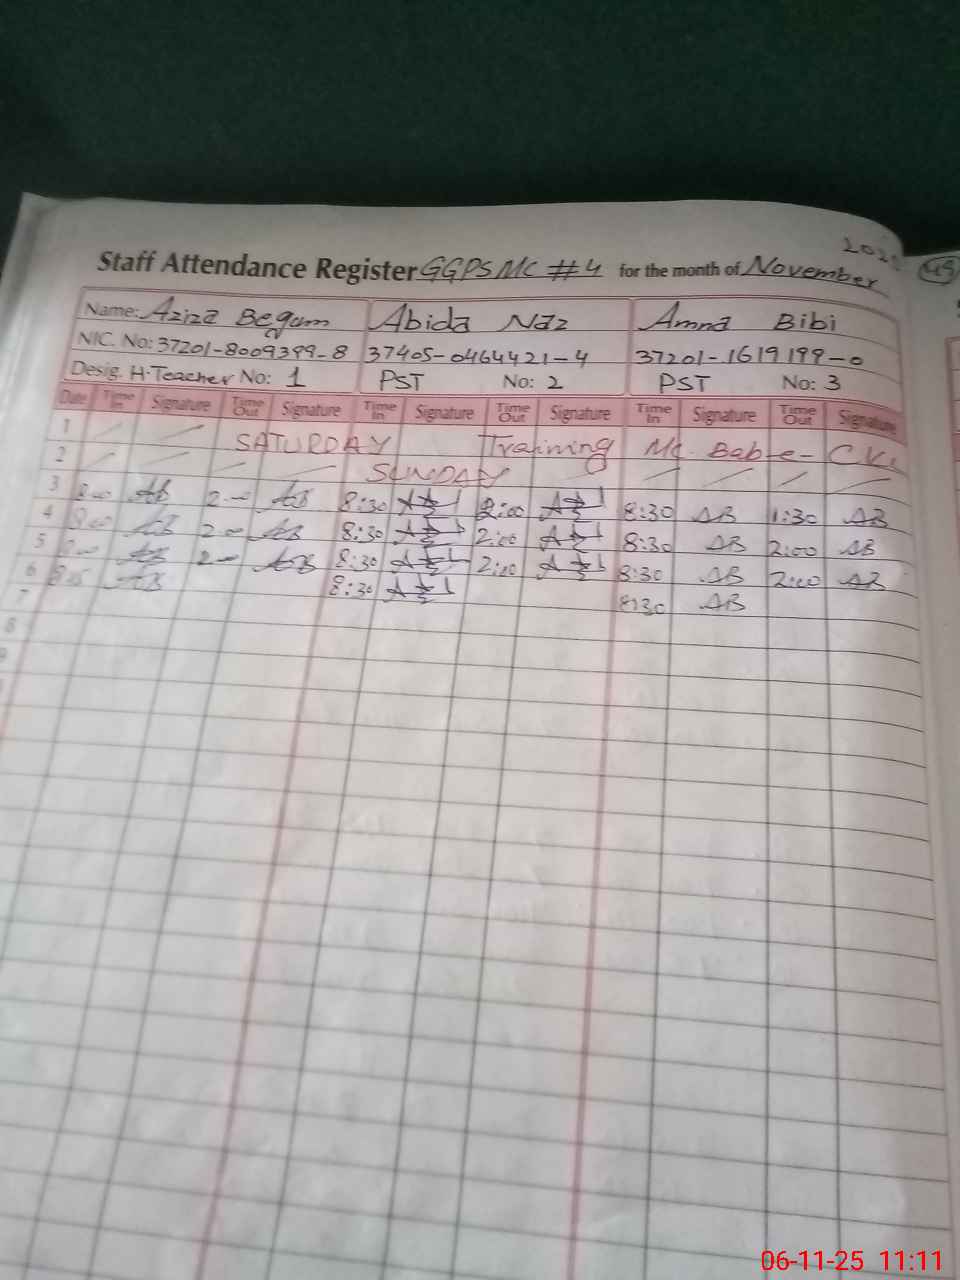 2025
49
Staff Attendance Register GGPS MC #4 for the month of November
Name: Aziza Begum Abida Naz Amna Bibi
NIC. No: 37201-8009399-8 37405-0464421-4 37201-1619199-0
Desig. H.Teacher No: 1 PST No: 2 PST No: 3
Date Time In Signature Time Out Signature Time In Signature Time Out Signature Time In Signature Time Out Signature
1 SATURDAY Training
2 SUNDAY
3 AB 2-00 AB 8:30 2:00 8:30 AB 1:30 AB
4 AB 2-00 AB 8:30 2:00 8:30 AB 2:00 AB
5 AB 2-00 AB 8:30 2:00 8:30 AB 2:00 AB
6 AB 8:30 8:30 AB
7
8
9
06-11-25 11:11